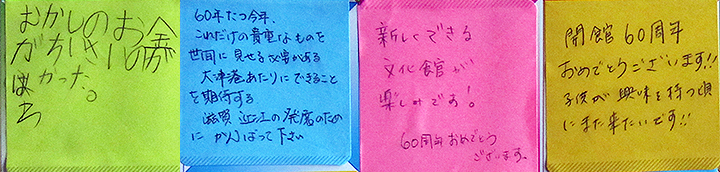 むかしのお金
がちいさいのが
かった。
60年たつ今年、
これだけの貴重なものを
世間に見せる必要がある
大津港あたりにできること
を期待する
滋賀 近江の発展のため
に がんばって下さい
新しくできる
文化館が
楽しみです!
60周年おめでとう
ございます。
開館60周年
おめでとうございます!!
子供が興味を持つ頃
にまた来たいです!!